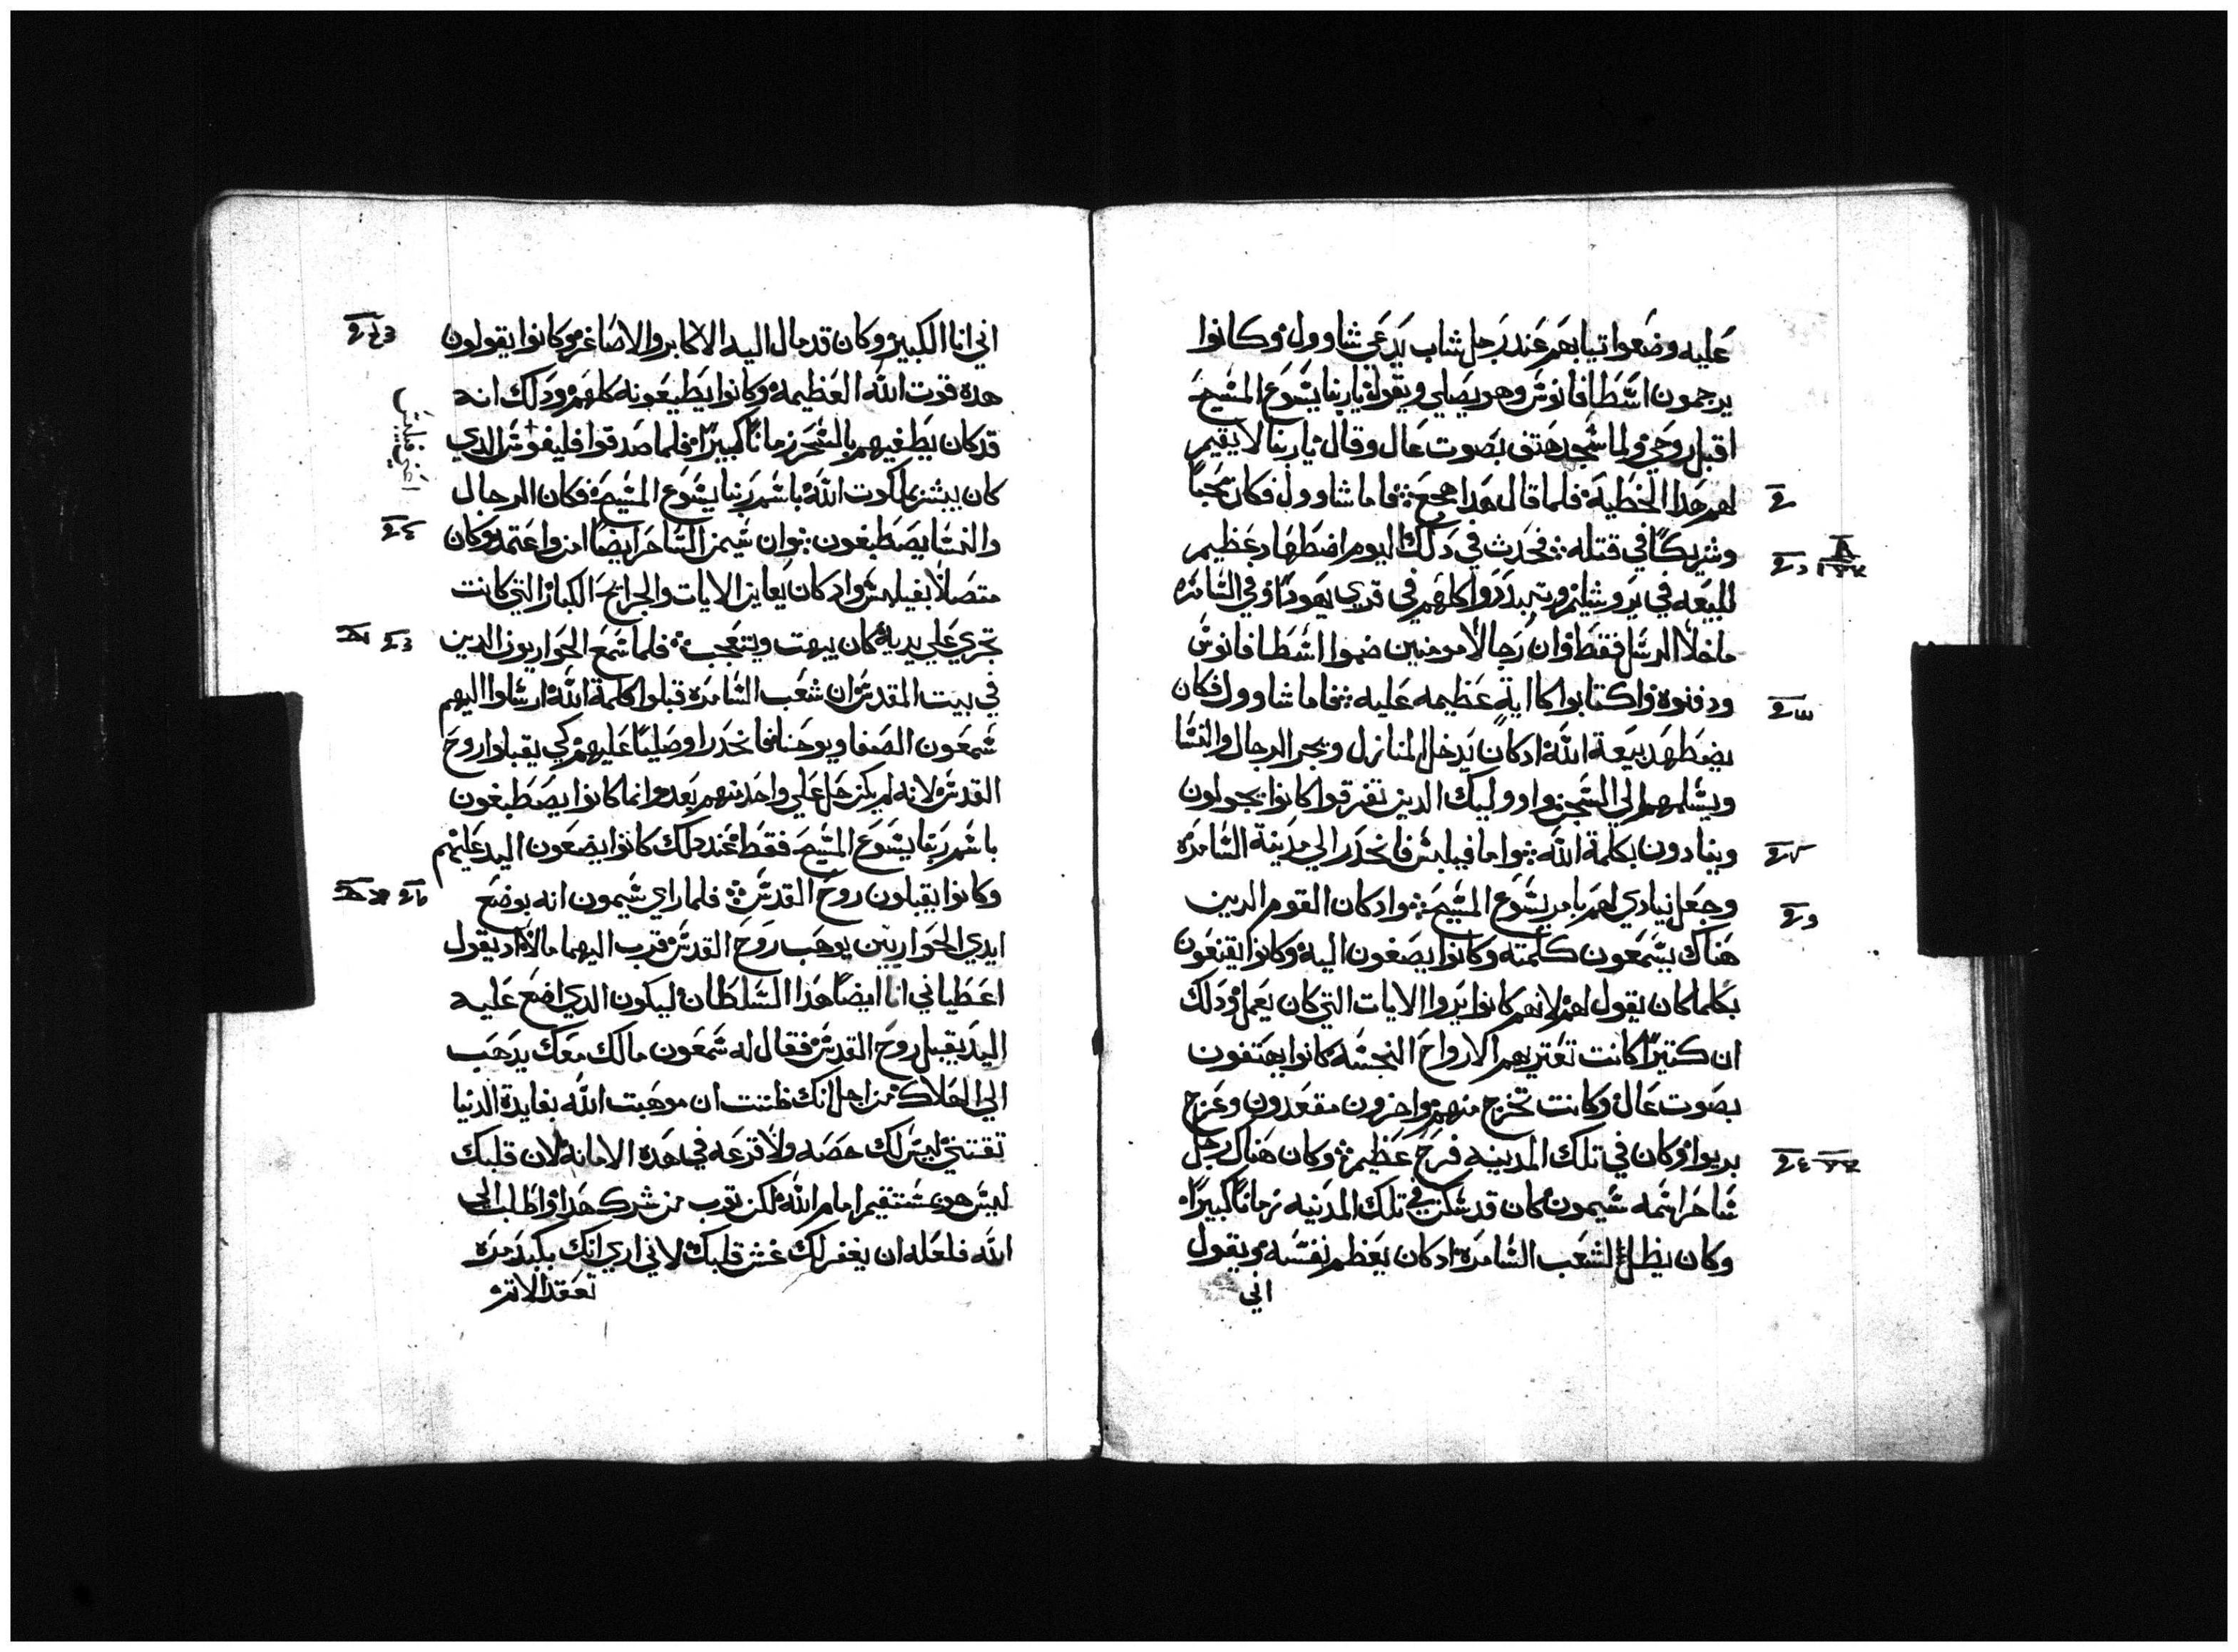 عليه وضعوا تيابهم عند رجل شاب يدعي شاوول وكانوا
يرجمون اسطافانوس وهو يصلي ويقول يا ربنا يسوع المسيح
اقبل روحي ولما سجد هتف بصوت عال وقال يا ربنا لا يقيم
لهم هذا الخطية فلما قال هدا هجع فاما شاوول فكان محبا
وشريكا في قتله فحدث في دلك اليوم اضطهاد عظيم
للبيعه في يروشليم وتبددوا كلهم في قري يهودا وفي السامره
ما خلا الرسل فقط وان رجالا مومنين ضموا اسطافانوس
ودفنوه واكتابوا كاابة عظيمه عليه فاما شاوول فكان
يضطهد بيعة الله ادكان يدخل المنازل ويجر الرجال والنسا
ويسلمهم الي السجن واووليك الدين تفرقوا كانوا يجولون
وينادون بكلمة الله واما فيلبس فانحدر الي مدينة السامره
وجعل ينادي لهم بامر يسوع المسيح وادكان القوم الدين
هناك يسمعون كلمته وكانوا يصغون اليه وكانوا يقنعون
بكلما كان يقول لهم لانهم كانوا يروا الايات التي كان يعمل ودلك
ان كتيرا كانت تعتريهم الارواح النجسه كانوا يهتفون
بصوت عال وكانت تخرج منهم واخرون مقعدون وعرج
بريوا وكان في تلك المدينه فرح عظيم وكان هناك رجل
ساحر اسمه شيمون كان قد سكن في تلك المدنيه زمانا كبيرا
وكان يظل الشعب السامره ادكان يعظم نفسه ويقول
اني
اني انا الكبير وكان قد مال اليه الاكابر والاصاغر وكانوا يقولون
هده قوت الله العظيمه وكانوا يطيعونه كلهم ودلك انه
قد كان يطغيهم بالسحر زمانا كبيرا فلما صدقوا فليفوس الدي
كان يبشر بملكوت الله باسم ربنا يسوع المسيح فكان الرجال
والنسا يصطبغون وان شيمن الساحر ايضا امن واعتمد وكان
متصلا بفيلبس واد كان يعاين الايات والجرايح الكبار التي كانت
تجري علي يديه كان يبهت ويتعجب فلما سمع الحواريون الدين
في بيت المقدس ان شعب السامره قبلوا كلمة الله ارسلوا اليهم
شمعون الصفا ويوحنا فانحدرا وصليا عليهم كي يقبلوا روح
القدس لانه لم يكن حل علي واحد منهم بعد وانما كانوا يصطبغون
باسم ربنا يسوع المسيح فقط عند دلك كانوا يضعون اليد عليهم
وكانوا يقبلون روح القدس فلما راي شيمون انه بوضع
ايدي الحواريين يوهب روح القدس قرب اليهما مالا اد يقول
اعطياني انا ايضا هدا السلطان ليكون الدي اضع عليه
اليد يقبل روح القدس فقال له شمعون مالك معك يدهب
الي الهلاك من اجل انك ظننت ان موهبت الله بفايدة الدنيا
تقتني ليس لك حصه ولا قرعه في هده الامانه لان قلبك
ليس هو مستقيم امام الله لكن توب من شرك هدا واطلب الي
الله فلعله ان يغفر لك غش قلبك لاني اري انك بكبد مره
تعقد الاتم
اعني فيلبس